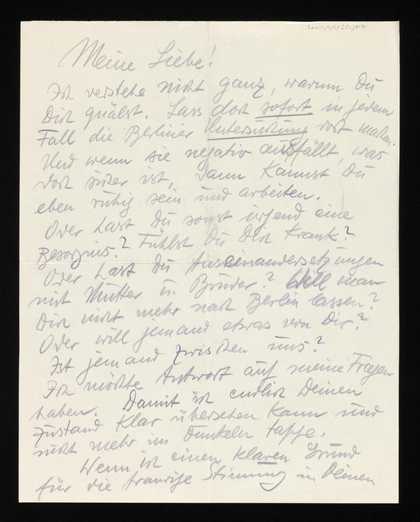 Meine Liebe!
Ich verstehe nicht ganz, warum Du
Dich quälst. Lass doch sofort in jedem
Fall die Berliner Untersuchung dort machen.
Und wenn sie negativ ausfällt, was
doch sicher ist, dann kannst Du
eben ruhig sein und arbeiten.
Oder hast Du sonst irgend eine
Besorgnis? Fühlst Du Dich krank?
Oder hast Du Auseinandersetzungen
mit Mutter u. Brüder? Will man
Dich nicht mehr nach Berlin lassen?
Oder will jemand etwas von Dir?
Ist jemand zwischen uns?
Ich möchte Antwort auf meine Fragen
haben. Damit ich endlich Deinen
Zustand klar übersehen kann und
nicht mehr im Dunkeln tappe.
Wenn ich einen klaren Grund
für die traurige Stimmung in Deinen